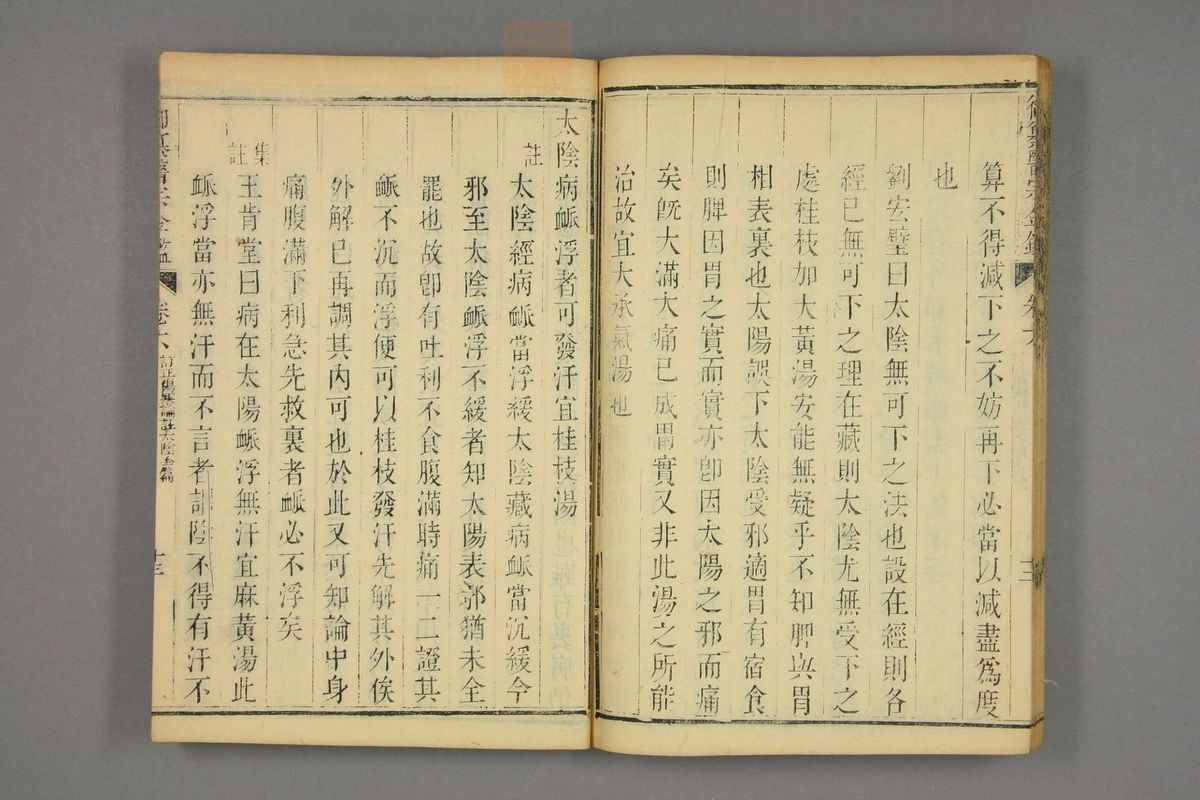 算不得減下之不妨再下必當以減盡爲度
也
劉安璧曰太陰無可下之法也設在經則各
經已無可下之理在藏則太陰尤無受下之
處桂枝加大黃湯安能無疑乎不知脾與胃
相表裏也太陽誤下太陰受邪適胃有宿食
則脾因胃之實而實亦卽因太陽之邪而痛
矣旣大滿大痛已成胃實又非此湯之所能
治故宜大承氣湯也
太陰病脈浮者可發汗宜桂枝湯
註
太陰經病脈當浮緩太陰藏病脈當沉緩今
邪至太陰脈浮不緩者知太陽表邪猶未全
罷也故卽有吐利不食腹滿時痛一二證其
脈不沉而浮便可以桂枝發汗先解其外俟
外解已再調其內可也於此又可知論中身
痛腹滿下利急先救裏者脈必不浮矣
集註
王肯堂曰病在太陽脈浮無汗宜麻黃湯此
脈浮當亦無汗而不言者謂陰不得有汗不
卷六
訂正傷寒論註太陰全篇
十三